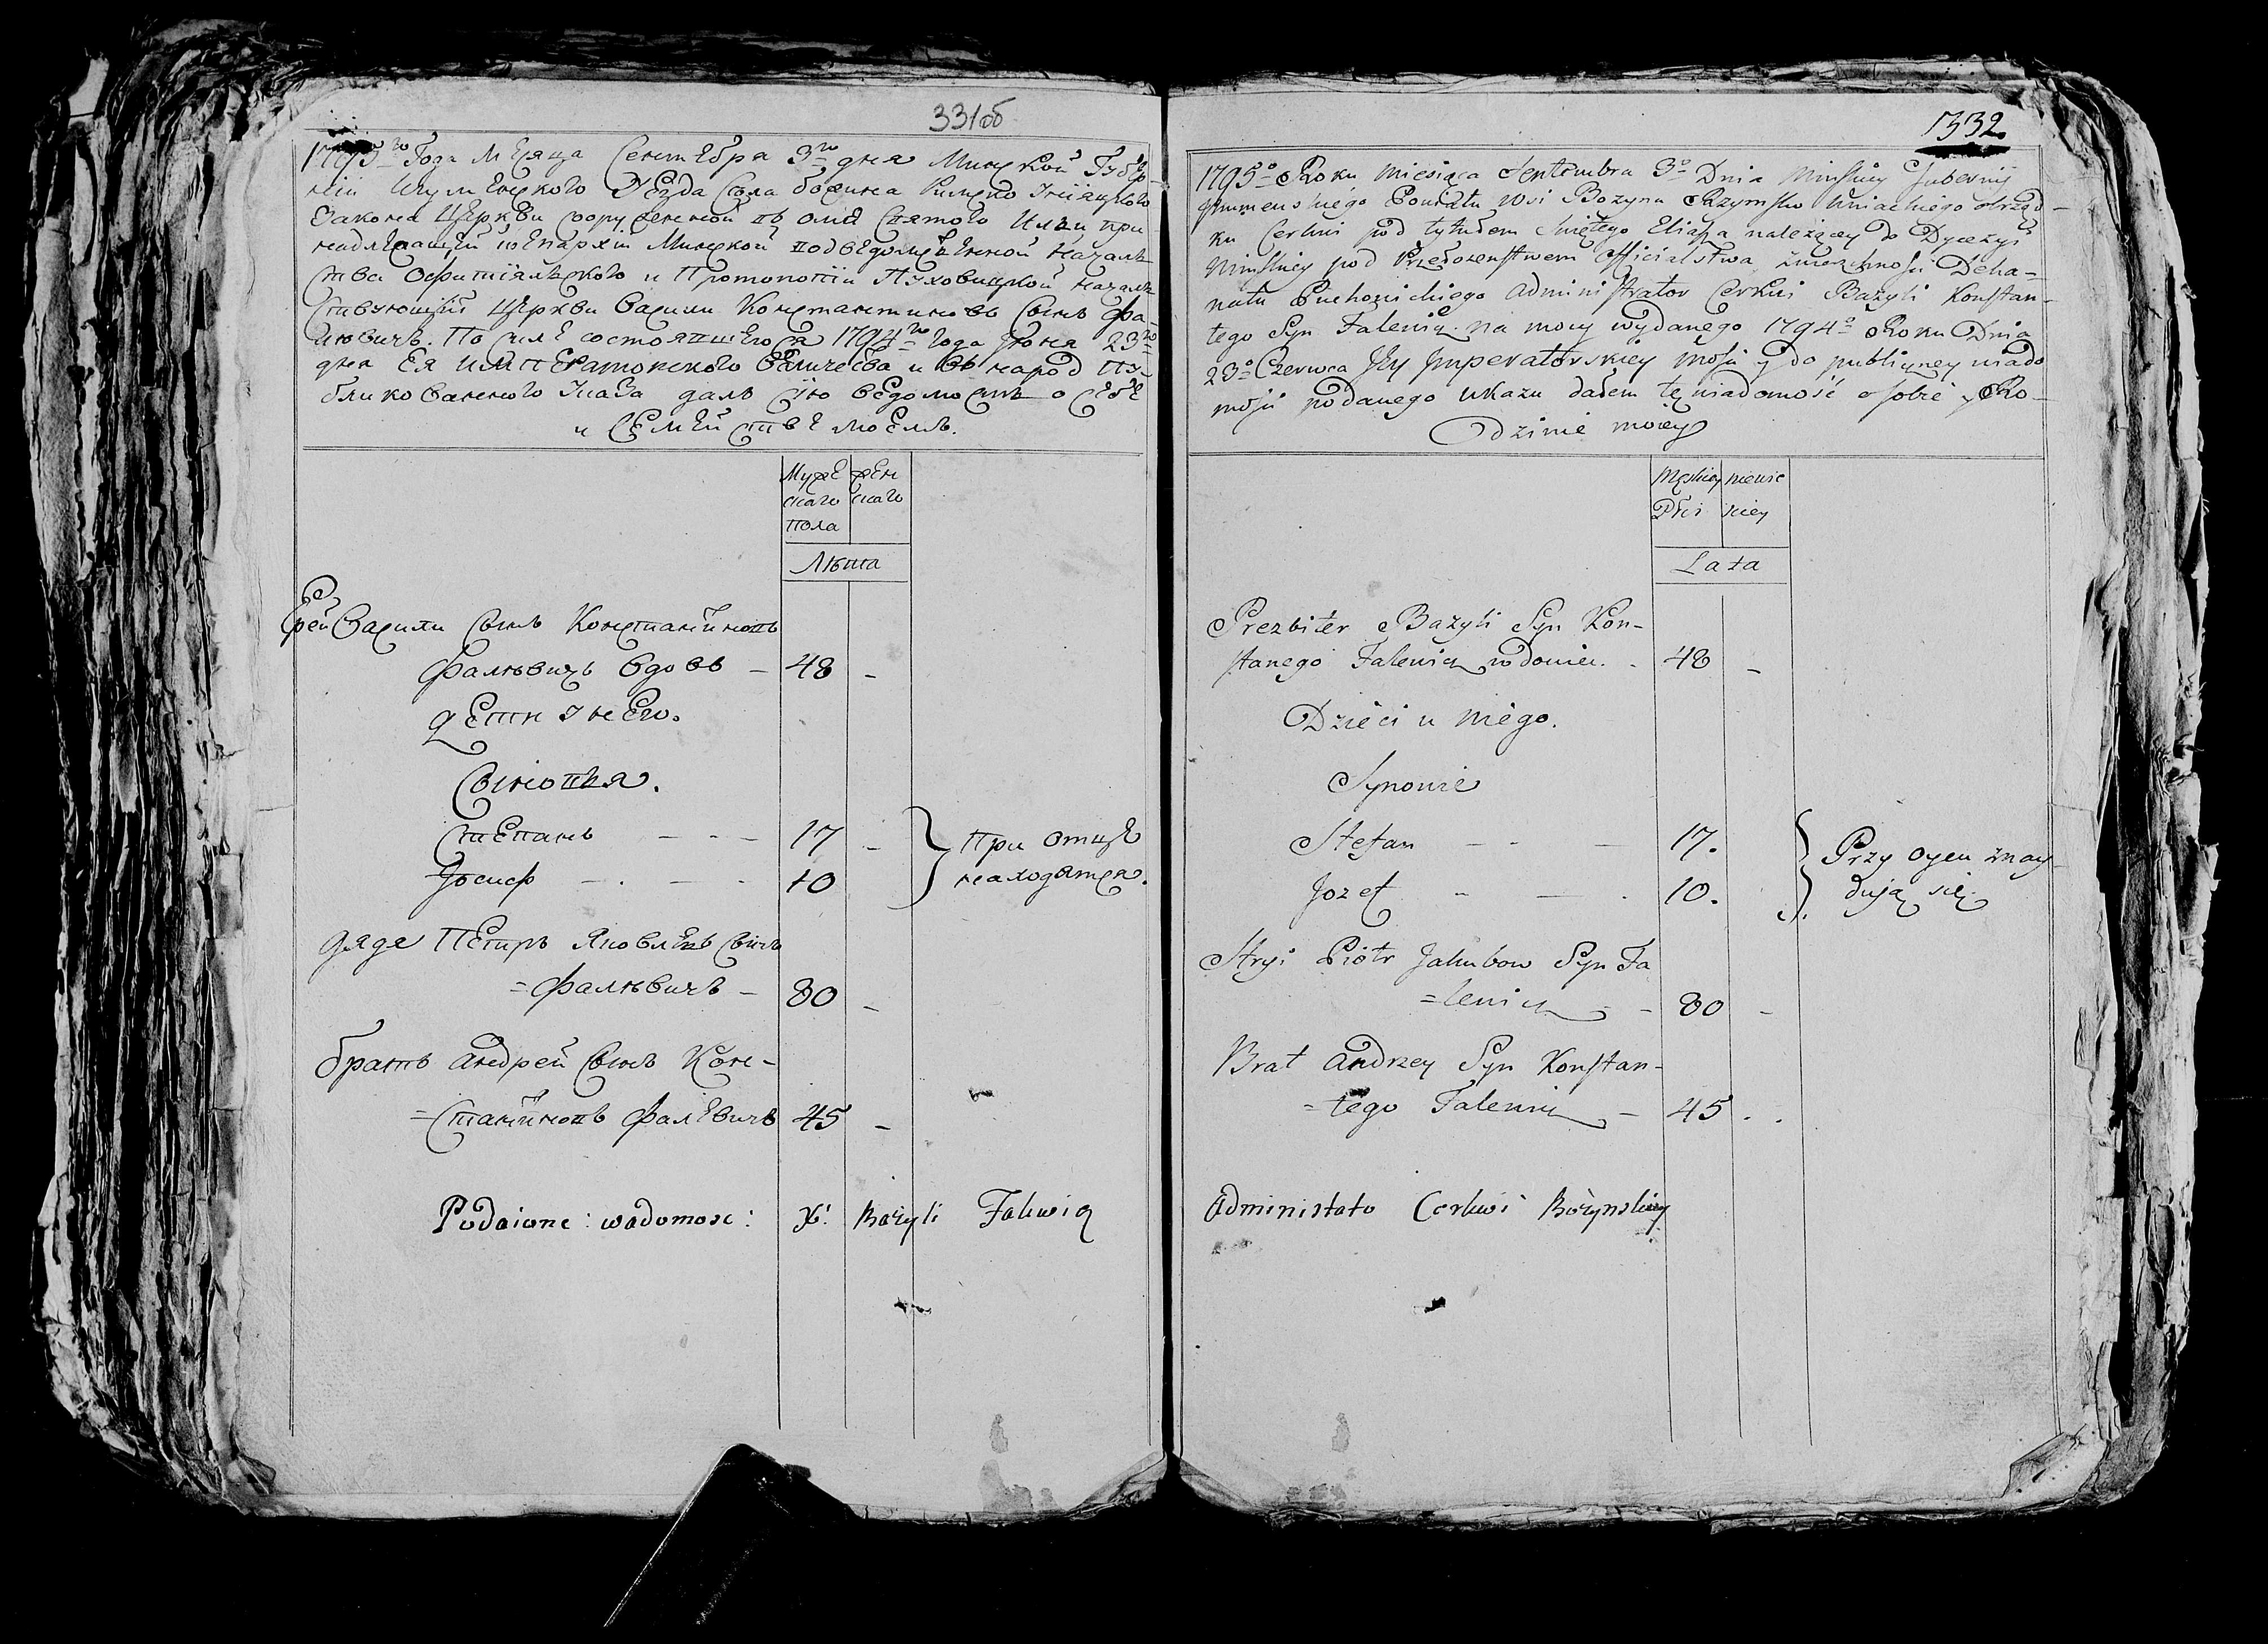 331об
1795го Года Месяца Сентебра 3го дня Минской Губер-
нии Игуменского Уезда Села божина Римско Униацкого
Закона Церкви сооруженной во имя Святого Илии при
надлежащей к Епархии Минской подведомственной Началь
ства Официальского и Протопопии Пуховицкой началь
ствующий Церкви Василий Константиновъ Сынъ Фа-
левичъ. По силе состоявшегося 1794го Года Июня 23го
дня Ея Императорского Величества и въ народ пу-
бликованного Указа далъ сию ведомость о себе
и Семействе моемъ.
Муже жен
скаго скаго
пола
Лѣта
Ерей Василий Сынъ Константиновъ
Фалѣвичъ вдовъ - 48 -
дети у него.
Сыновья.
Степанъ - - - 17 -
Иосифъ - . - - 10
При отце
находятся.
дядя Петръ Яковлевъ Сынъ
=Фалѣвичъ - 80 -
братъ Андрей Сынъ Кон-
=стантиновъ Фалевичъ 45 -
Podaione: wadomosc: X: Bazyli Falewicz
332
1795o Roku Miesiąca Septembra 3o Dnia Minskiey Gubernij
Jhumenskiego Powiatu Wsi Bożyna Rzymsko Uniackiego obrząd-
ku Cerkwi pod tytułem Swiętego Eliasza należącey do Dyecezyi
Minskiey pod Przełożenstwem Officialstwa zwierzchnosci Deka-
natu Puchowickiego Administrator Cerkwi Bazyli Konstan-
tego Syn Falewicz na mocy wydanego 1794o Roku Dnia
23o Czerwca Jey Jmperatorskiey Mości y do publiczney wiado
mości podanego ukazu dałem tę wiadomość o sobie y Ro-
dzinie moiey
Męskiey niewie
Płci skiey
Lata
Prezbiter Bazyli Syn Kon-
stanego Falewicz wdowiec. - 48 -
Dzieci u niego.
Synowie
Stefan - - - 17.
Jozef - - . 10.
Przy oycu znay-
dują się
Stryi Piotr Jakubow Syn Fa
=lewicz - - 80 -
Brat Andrzey Syn Konstan-
=tego Falewicz - 45 . .
Administato Cerkwi Bożynskiey